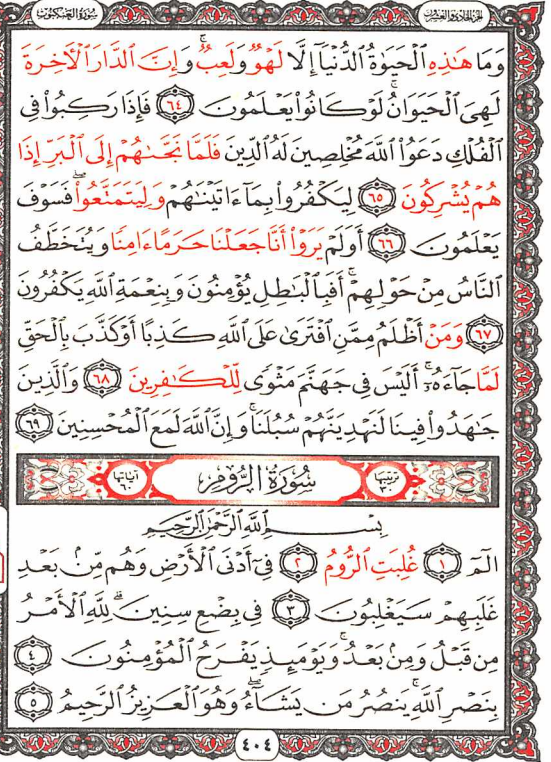 سُورَةُ العَنكَبُوت الجزء الحادي والعشرون
وَمَا هَٰذِهِ ٱلْحَيَوٰةُ ٱلدُّنْيَآ إِلَّا لَهْوٌ وَلَعِبٌ ۚ وَإِنَّ ٱلدَّارَ ٱلْأَخِرَةَ
لَهِىَ ٱلْحَيَوَانُ ۚ لَوْ كَانُوا۟ يَعْلَمُونَ ٦٤ فَإِذَا رَكِبُوا۟ فِى
ٱلْفُلْكِ دَعَوُا۟ ٱللَّهَ مُخْلِصِينَ لَهُ ٱلدِّينَ فَلَمَّا نَجَّىٰهُمْ إِلَى ٱلْبَرِّ إِذَا
هُمْ يُشْرِكُونَ ٦٥ لِيَكْفُرُوا۟ بِمَآ ءَاتَيْنَٰهُمْ وَلِيَتَمَتَّعُوا۟ ۖ فَسَوْفَ
يَعْلَمُونَ ٦٦ أَوَلَمْ يَرَوْا۟ أَنَّا جَعَلْنَا حَرَمًا ءَامِنًا وَيُتَخَطَّفُ
ٱلنَّاسُ مِنْ حَوْلِهِمْ ۚ أَفَبِٱلْبَٰطِلِ يُؤْمِنُونَ وَبِنِعْمَةِ ٱللَّهِ يَكْفُرُونَ
٦٧ وَمَنْ أَظْلَمُ مِمَّنِ ٱفْتَرَىٰ عَلَى ٱللَّهِ كَذِبًا أَوْ كَذَّبَ بِٱلْحَقِّ
لَمَّا جَآءَهُۥٓ ۚ أَلَيْسَ فِى جَهَنَّمَ مَثْوًى لِّلْكَٰفِرِينَ ٦٨ وَٱلَّذِينَ
جَٰهَدُوا۟ فِينَا لَنَهْدِيَنَّهُمْ سُبُلَنَا ۚ وَإِنَّ ٱللَّهَ لَمَعَ ٱلْمُحْسِنِينَ ٦٩
ترتيبها ٣٠ سُورَةُ الرُّومِ آياتها ٦٠
بِسْمِ ٱللَّهِ ٱلرَّحْمَٰنِ ٱلرَّحِيمِ
الٓمٓ ١ غُلِبَتِ ٱلرُّومُ ٢ فِىٓ أَدْنَى ٱلْأَرْضِ وَهُم مِّنۢ بَعْدِ
غَلَبِهِمْ سَيَغْلِبُونَ ٣ فِى بِضْعِ سِنِينَ ۗ لِلَّهِ ٱلْأَمْرُ
مِن قَبْلُ وَمِنۢ بَعْدُ ۚ وَيَوْمَئِذٍ يَفْرَحُ ٱلْمُؤْمِنُونَ ٤
بِنَصْرِ ٱللَّهِ ۚ يَنصُرُ مَن يَشَآءُ ۖ وَهُوَ ٱلْعَزِيزُ ٱلرَّحِيمُ ٥
٤٠٤